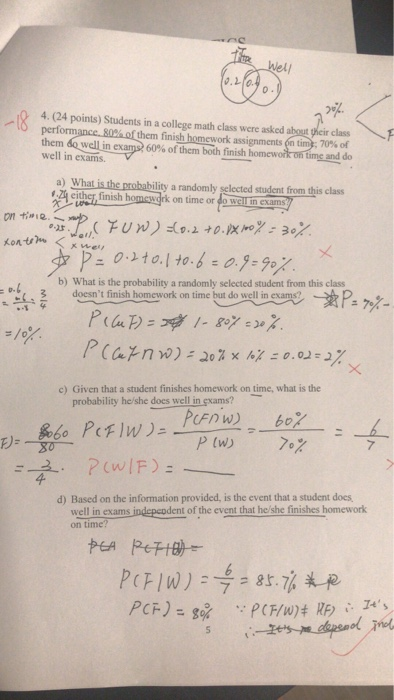 time
Well
0.2 0.6 0.1
70%
-18
4. (24 points) Students in a college math class were asked about their class
performance. 80% of them finish homework assignments on time; 70% of
them do well in exams; 60% of them both finish homework on time and do
well in exams.
a) What is the probability a randomly selected student from this class
either finish homework on time or do well in exams?
on time
P(FUW) = (0.2 + 0.1) x 100% = 30%.
x well
P = 0.2+0.1+0.6 = 0.9 = 90%.
b) What is the probability a randomly selected student from this class
doesn't finish homework on time but do well in exams?
P = 70% -
= 10%.
1 - 80% = 20%.
= 20% x 10% = 0.02 = 2%
c) Given that a student finishes homework on time, what is the
probability he/she does well in exams?
P(F|W) = P(F∩W) / P(W) = 60% / 70% = 6/7
60
80
= 3/4.
P(W|F) =
d) Based on the information provided, is the event that a student does
well in exams independent of the event that he/she finishes homework
on time?
P(F|W) = 6/7 = 85.7%
P(F) = 80% ∵ P(F/W) ≠ P(F) ∴ It's
5
∴ It's depend